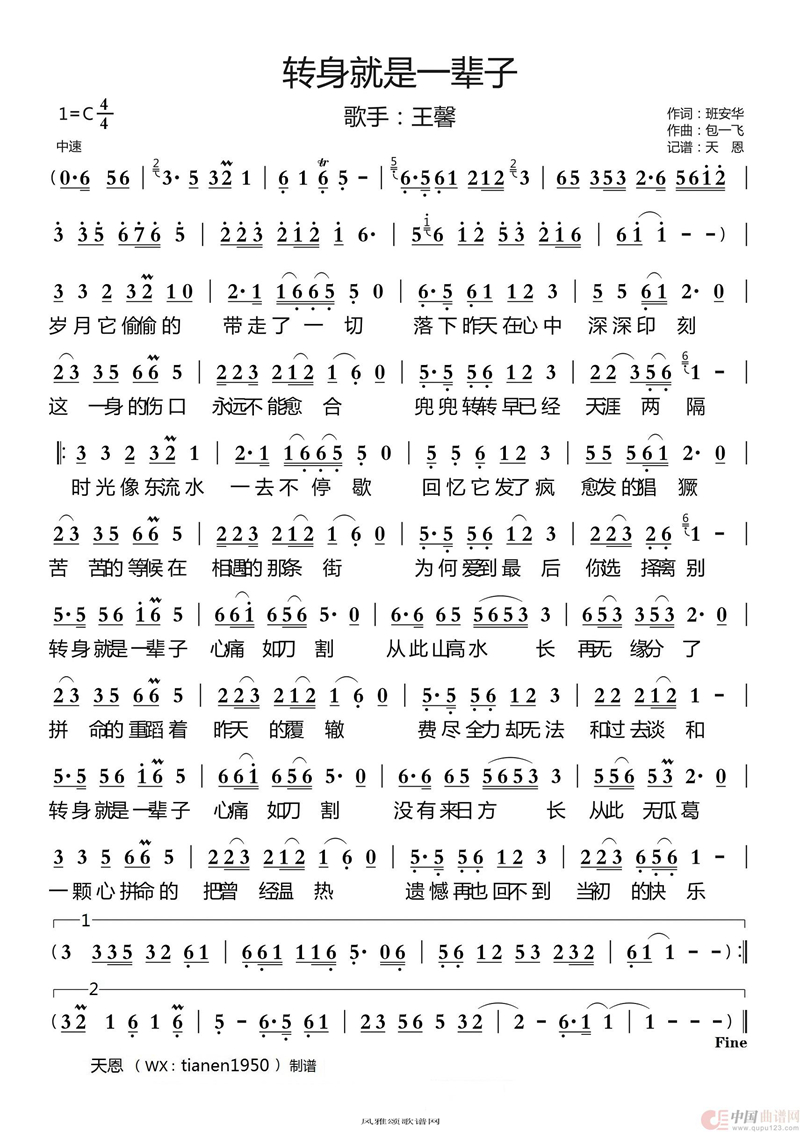 转身就是一辈子
1=C 4/4
歌手：王馨
作词：班安华
作曲：包一飞
记谱：天 恩
中速
(0·6 56 | 2 3·5 32 1 | 6 1 6 5 - | 5 6·5 61 212 2 3 | 65 353 2·6 5612 |
3 35 676 5 | 223 212 1 6· | 5 1 6 12 53 216 | 61 1 - - ) |
3 3 2 32 10 | 2·1 1665 5 0 | 6·5 61 1 2 | 5 5 61 2·0 |
岁月它偷偷的 带走了一切 落下昨天在心中 深深印刻
23 35 66 5 | 223 212 16·0 | 5·5 56 12 3 | 22 356 6 1 - |
这一身的伤口 永远不能愈合 兜兜转转早已经 天涯两隔
3 3 2 32 1 | 2·1 1665 5 0 | 5 56 12 3 | 55 561 2·0 |
时光像东流水 一去不停歇 回忆它发了疯 愈发的猖獗
23 35 66 5 | 223 212 16·0 | 5·5 56 12 3 | 223 2·6 6 1 - |
苦苦的等候在 相遇的那条街 为何爱到最后 你选择离别
5·5 56 16 5 | 661 656 5·0 | 6·6 65 5653 3 | 653 353 2 - |
转身就是一辈子 心痛如刀割 从此山高水长 再无缘分了
23 35 66 5 | 223 212 16·0 | 5·5 56 123 | 22 212 1 - |
拼命的重蹈着 昨天的覆辙 费尽全力却无法 和过去谈和
5·5 56 16 5 | 661 656 5·0 | 6·66 5 5653 3 | 656 53 2 - |
转身就是一辈子 心痛如刀割 没有来日方长 从此无瓜葛
3 3 5 66 5 | 223 212 16·0 | 5·5 56 12 3 | 223 656 1 - |
一颗心拼命的 把曾经温热 遗憾再也回不到 当初的快乐
1
(3 335 32 61 | 661 116 5·06 | 56 12 53 232 | 61 1 - - ) :|
2
(32 1 61 6 | 5 - 6·5 6 | 235 56 32 2 | 2 - 6·1 1 | 1 - - - ) ‖
Fine
天恩（WX：tianen1950）制谱
风雅颂歌谱网
中国曲谱网
www.qupu123.com